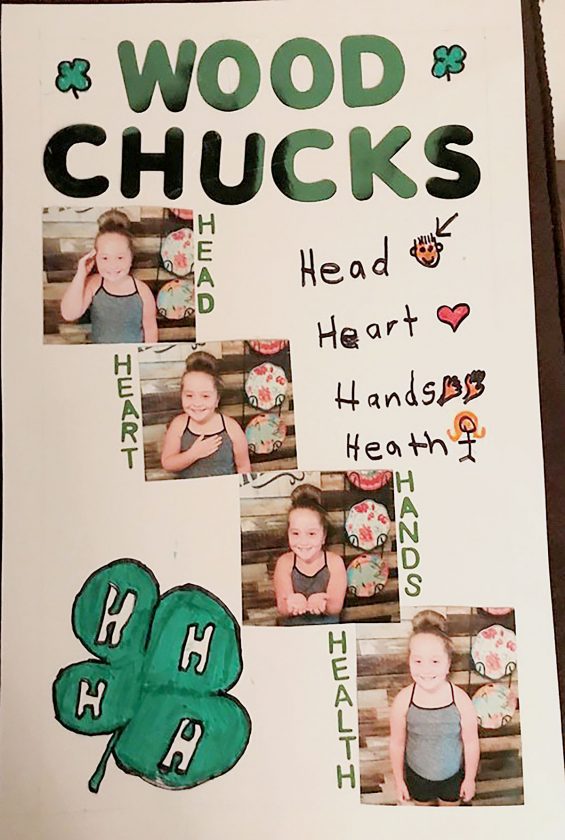 WOOD
CHUCKS
HEAD
Head
Heart
HEART
Hands
Heath
HANDS
HEALTH
H
H
H
H